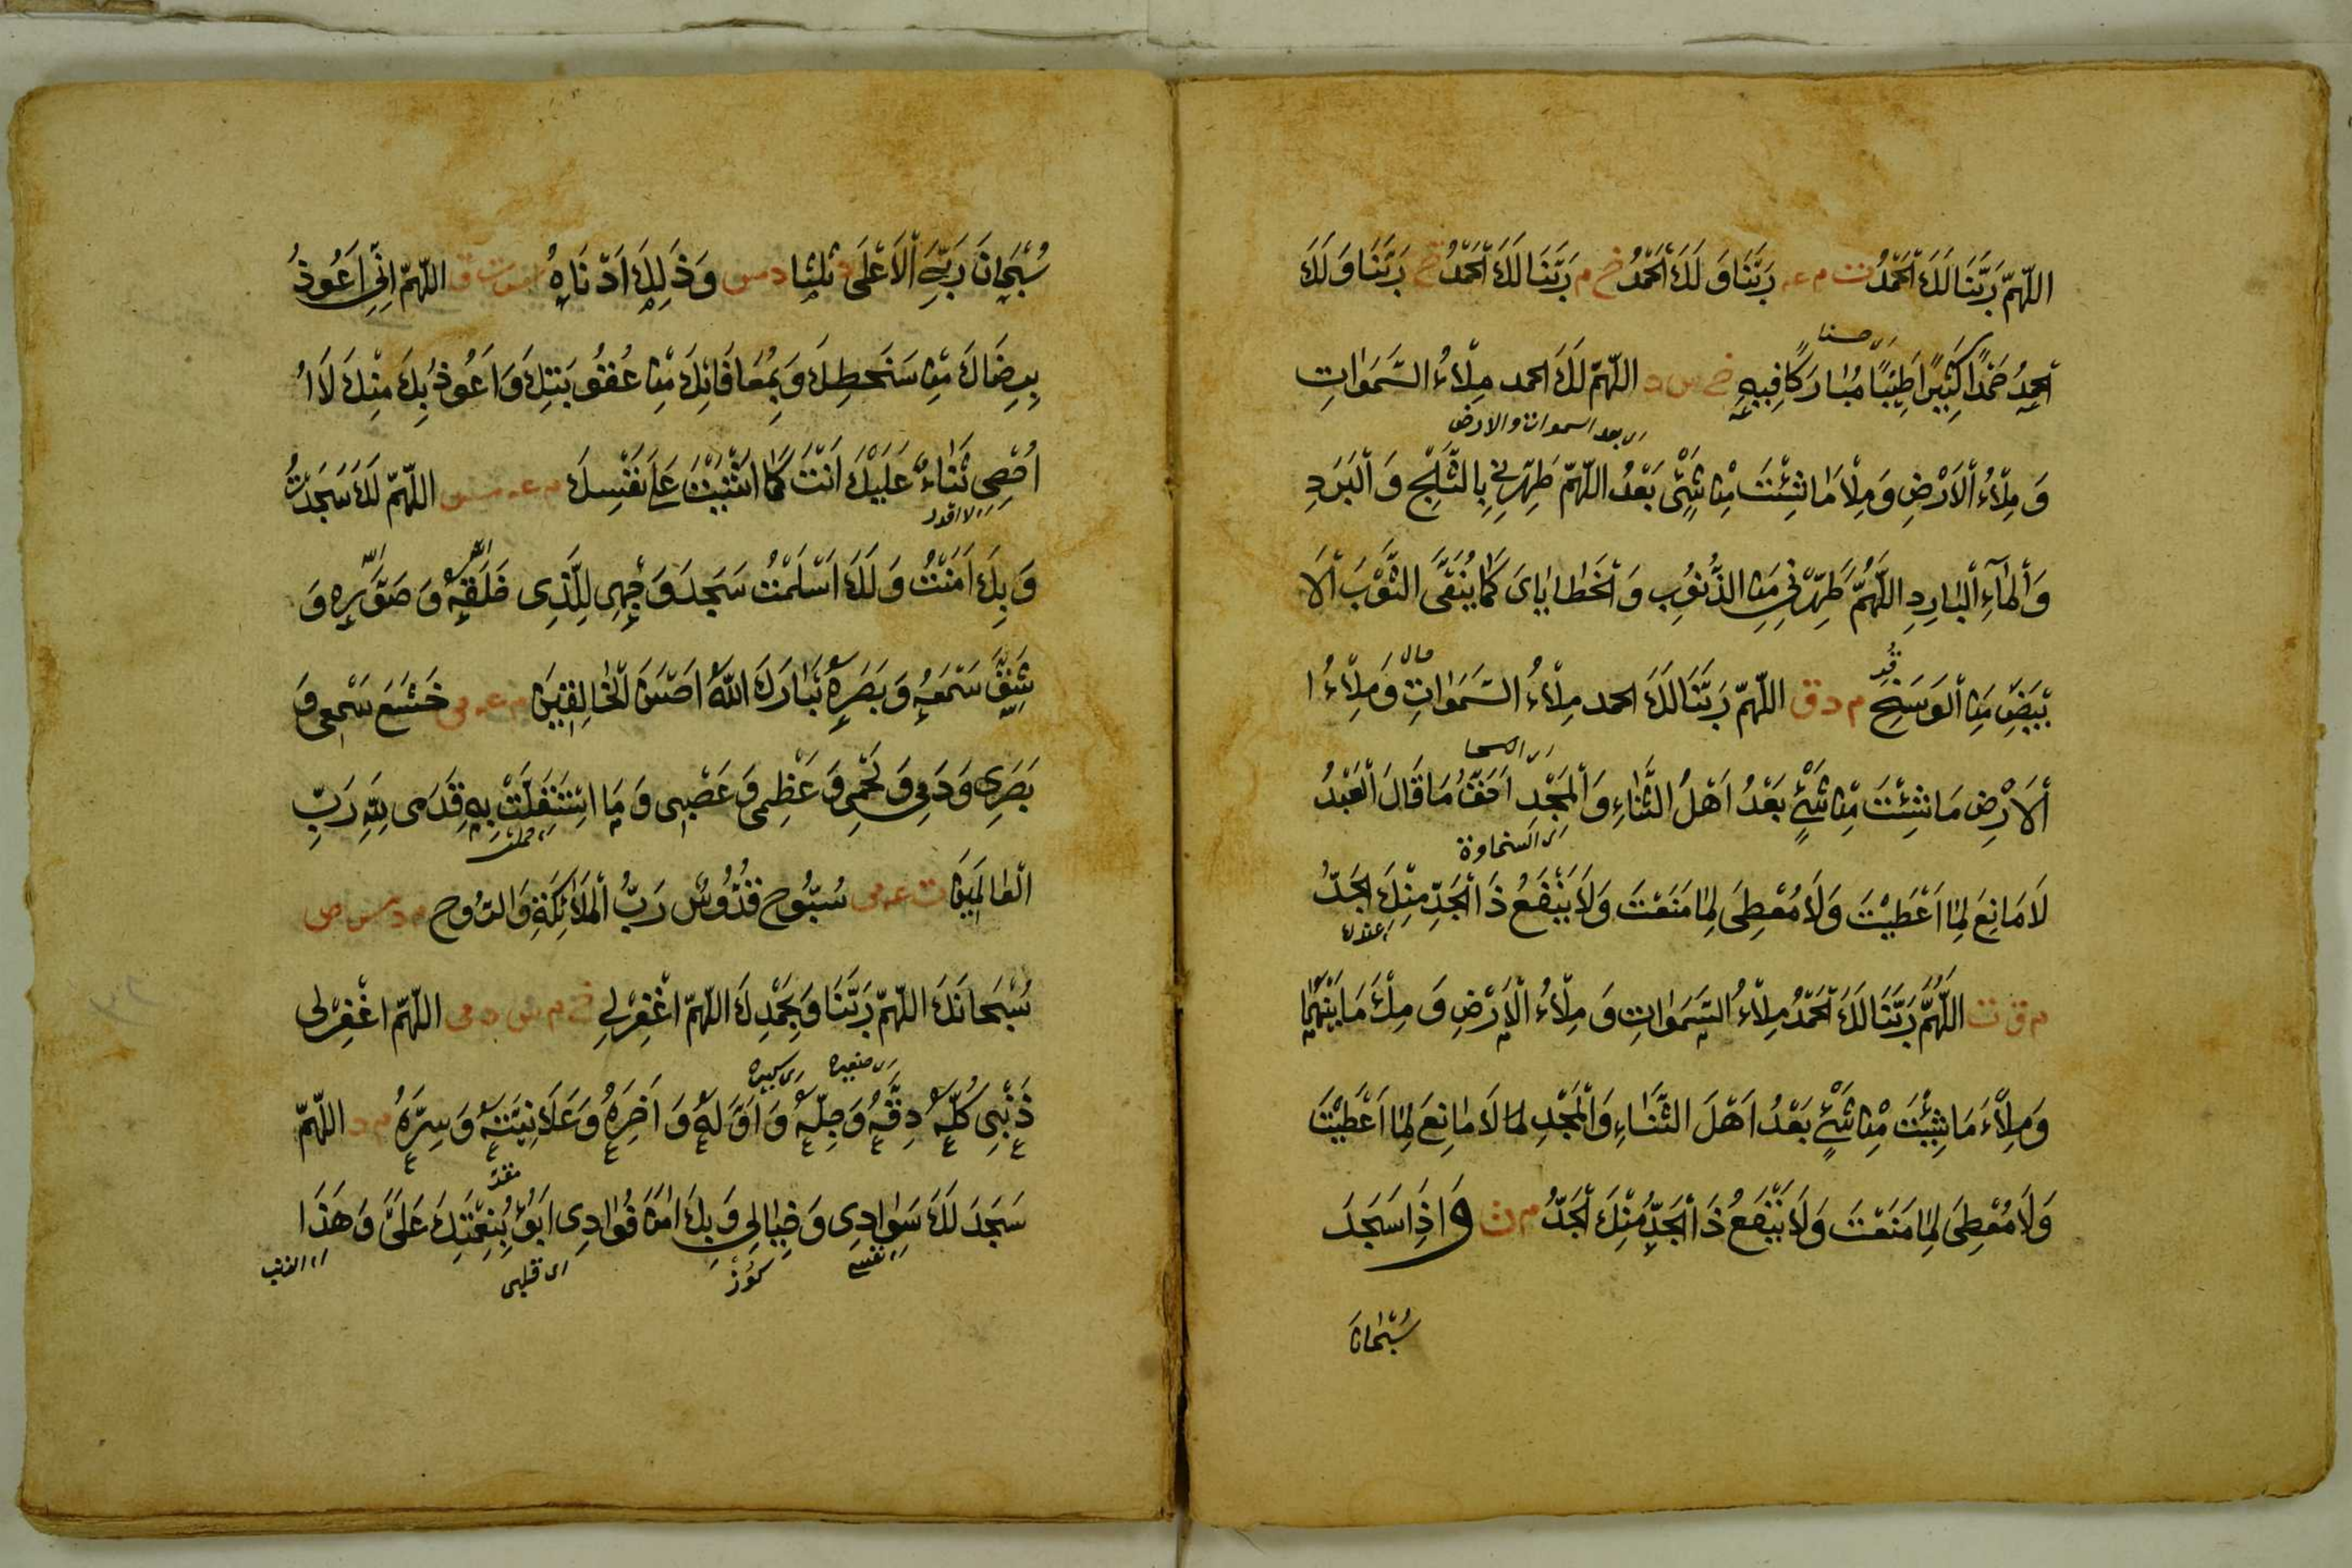 اللّهمّ رَبَّنَا لَكَ الْحَمْدُ ت م عه رَبَّنَا وَ لَكَ الْحَمْدُ خ م رَبَّنَا لَكَ الْحَمْدُ خ رَبَّنَا وَ لَكَ
ای حسنا
الْحَمِدُ حَمْدًا كَثِيْرًا طَيِّبًا مُبَارَكًا فِيهِ خ س د اللّهمّ لَكَ الحمد مِلْاءُ السَّمَوَاتِ
ای بعد السموات والارض
وَ مِلْاءُ الْاَرْضِ وَ مِلْاَ مَا شِئْتَ مِنْ شَيْءٍ بَعْدُ اللّهمّ طَهِّرْنِي بِالثَّلْجِ وَ الْبَرَدِ
وَ الْمَآءِ الْبَارِدِ اللّهُمَّ طَهِّرْنِي مِنَ الذُّنُوبِ وَ الْخَطَايَايَ كَمَا يُنَقَّى الثَّوْبَ الْا
بْيَضِ مِنَ الْوَسَخِ م د ق اللّهمّ رَبَّنَا لَكَ الحمد مِلْاءُ السَّمَوَاتِ وَ مِلْاءُ ا
الْاَرْضِ مَا شِئْتَ مِنْ شَيْءٍ بَعْدُ اَهْلُ الثَّنَاءِ وَ الْمَجْدِ اَحَقُّ مَا قَالَ الْعَبْدُ
ای السخاوة
لَا مَانِعَ لِمَا اَعْطَيْتَ وَ لَا مُعْطِيَ لِمَا مَنَعْتَ وَ لَا يَنْفَعُ ذَا الْجَدِّ مِنْكَ الْجَدُّ
ای عندك
م ق ت اللّهُمَّ رَبَّنَا لَكَ الْحَمْدُ مِلْاءُ السَّمَوَاتِ وَ مِلْاءُ الْاَرْضِ وَ مِلْءَ مَا بَيْنَهُمَا
وَ مِلْاءَ مَا شِئْتَ مِنْ شَيْءٍ بَعْدُ اَهْلَ الثَّنَاءِ وَ الْمَجْدِ لَا مَانِعَ لِمَا اَعْطَيْتَ
وَ لَا مُعْطِيَ لِمَا مَنَعْتَ وَ لَا يَنْفَعُ ذَا الْجَدِّ مِنْكَ الْجَدُّ م ن وَ اِذَا سَجَدَ
سُبْحَانَ
سُبْحَانَ رَبِّيَ الْاَعْلَى ثَلٰثا د مس وَ ذَلِكَ اَدْنَاهُ اللّهمّ اِنِّي اَعُوذُ
بِرِضَاكَ مِنْ سَخَطِكَ وَ بِمُعَافَاتِكَ مِنْ عُقُوبَتِكَ وَ اَعُوذُ بِكَ مِنْكَ لَا اُ
اُحْصِي ثَنَاءً عَلَيْكَ اَنْتَ كَمَا اَثْنَيْتَ عَلَى نَفْسِكَ م عه اللّهمّ لَكَ سَجَدْتُ
ای لا اقدر
وَ بِكَ اَمَنْتُ وَ لَكَ اَسْلَمْتُ سَجَدَ وَجْهِي لِلَّذِي خَلَقَهُ وَ صَوَّرَهُ وَ
شَقَّ سَمْعَهُ وَ بَصَرَهُ تَبَارَكَ اللّهُ اَحْسَنَ الْخَالِقِيْنَ م عه مى خَشَعَ سَمْعِي وَ
بَصَرِي وَ دَمِي وَ لَحْمِي وَ عَظْمِي وَ عَصَبِي وَ مَا اسْتَقَلَّتْ بِهِ قِدَمِي لِلّهِ رَبِّ
الْعَالَمِيْنَ ت عه مى سُبُّوح قُدُّوسٌ رَبُّ الْمَلَائِكَةِ وَ الرُّوح م د س
سُبْحَانَكَ اللّهمّ رَبَّنَا وَ بِحَمْدِكَ اللّهمّ اغْفِرْلِي خ م س د مى اللّهمّ اغْفِرْلِي
ای صغيره ای كبيره
ذَنْبِي كُلَّهُ دِقَّهُ وَ جِلَّهُ وَ اَوَّلَهُ وَ اَخِرَهُ وَ عَلَانِيَتَهُ وَ سِرَّهُ م د اللّهمّ
سَجَدَ لَكَ سَوَادِي وَ خِيَالِي وَ بِكَ امَنَ فُوَادِي اَبُوْءُ بِنِعْمَتِكَ عَلَىَّ وَ هَذَا
ای نفسي ای قلبي